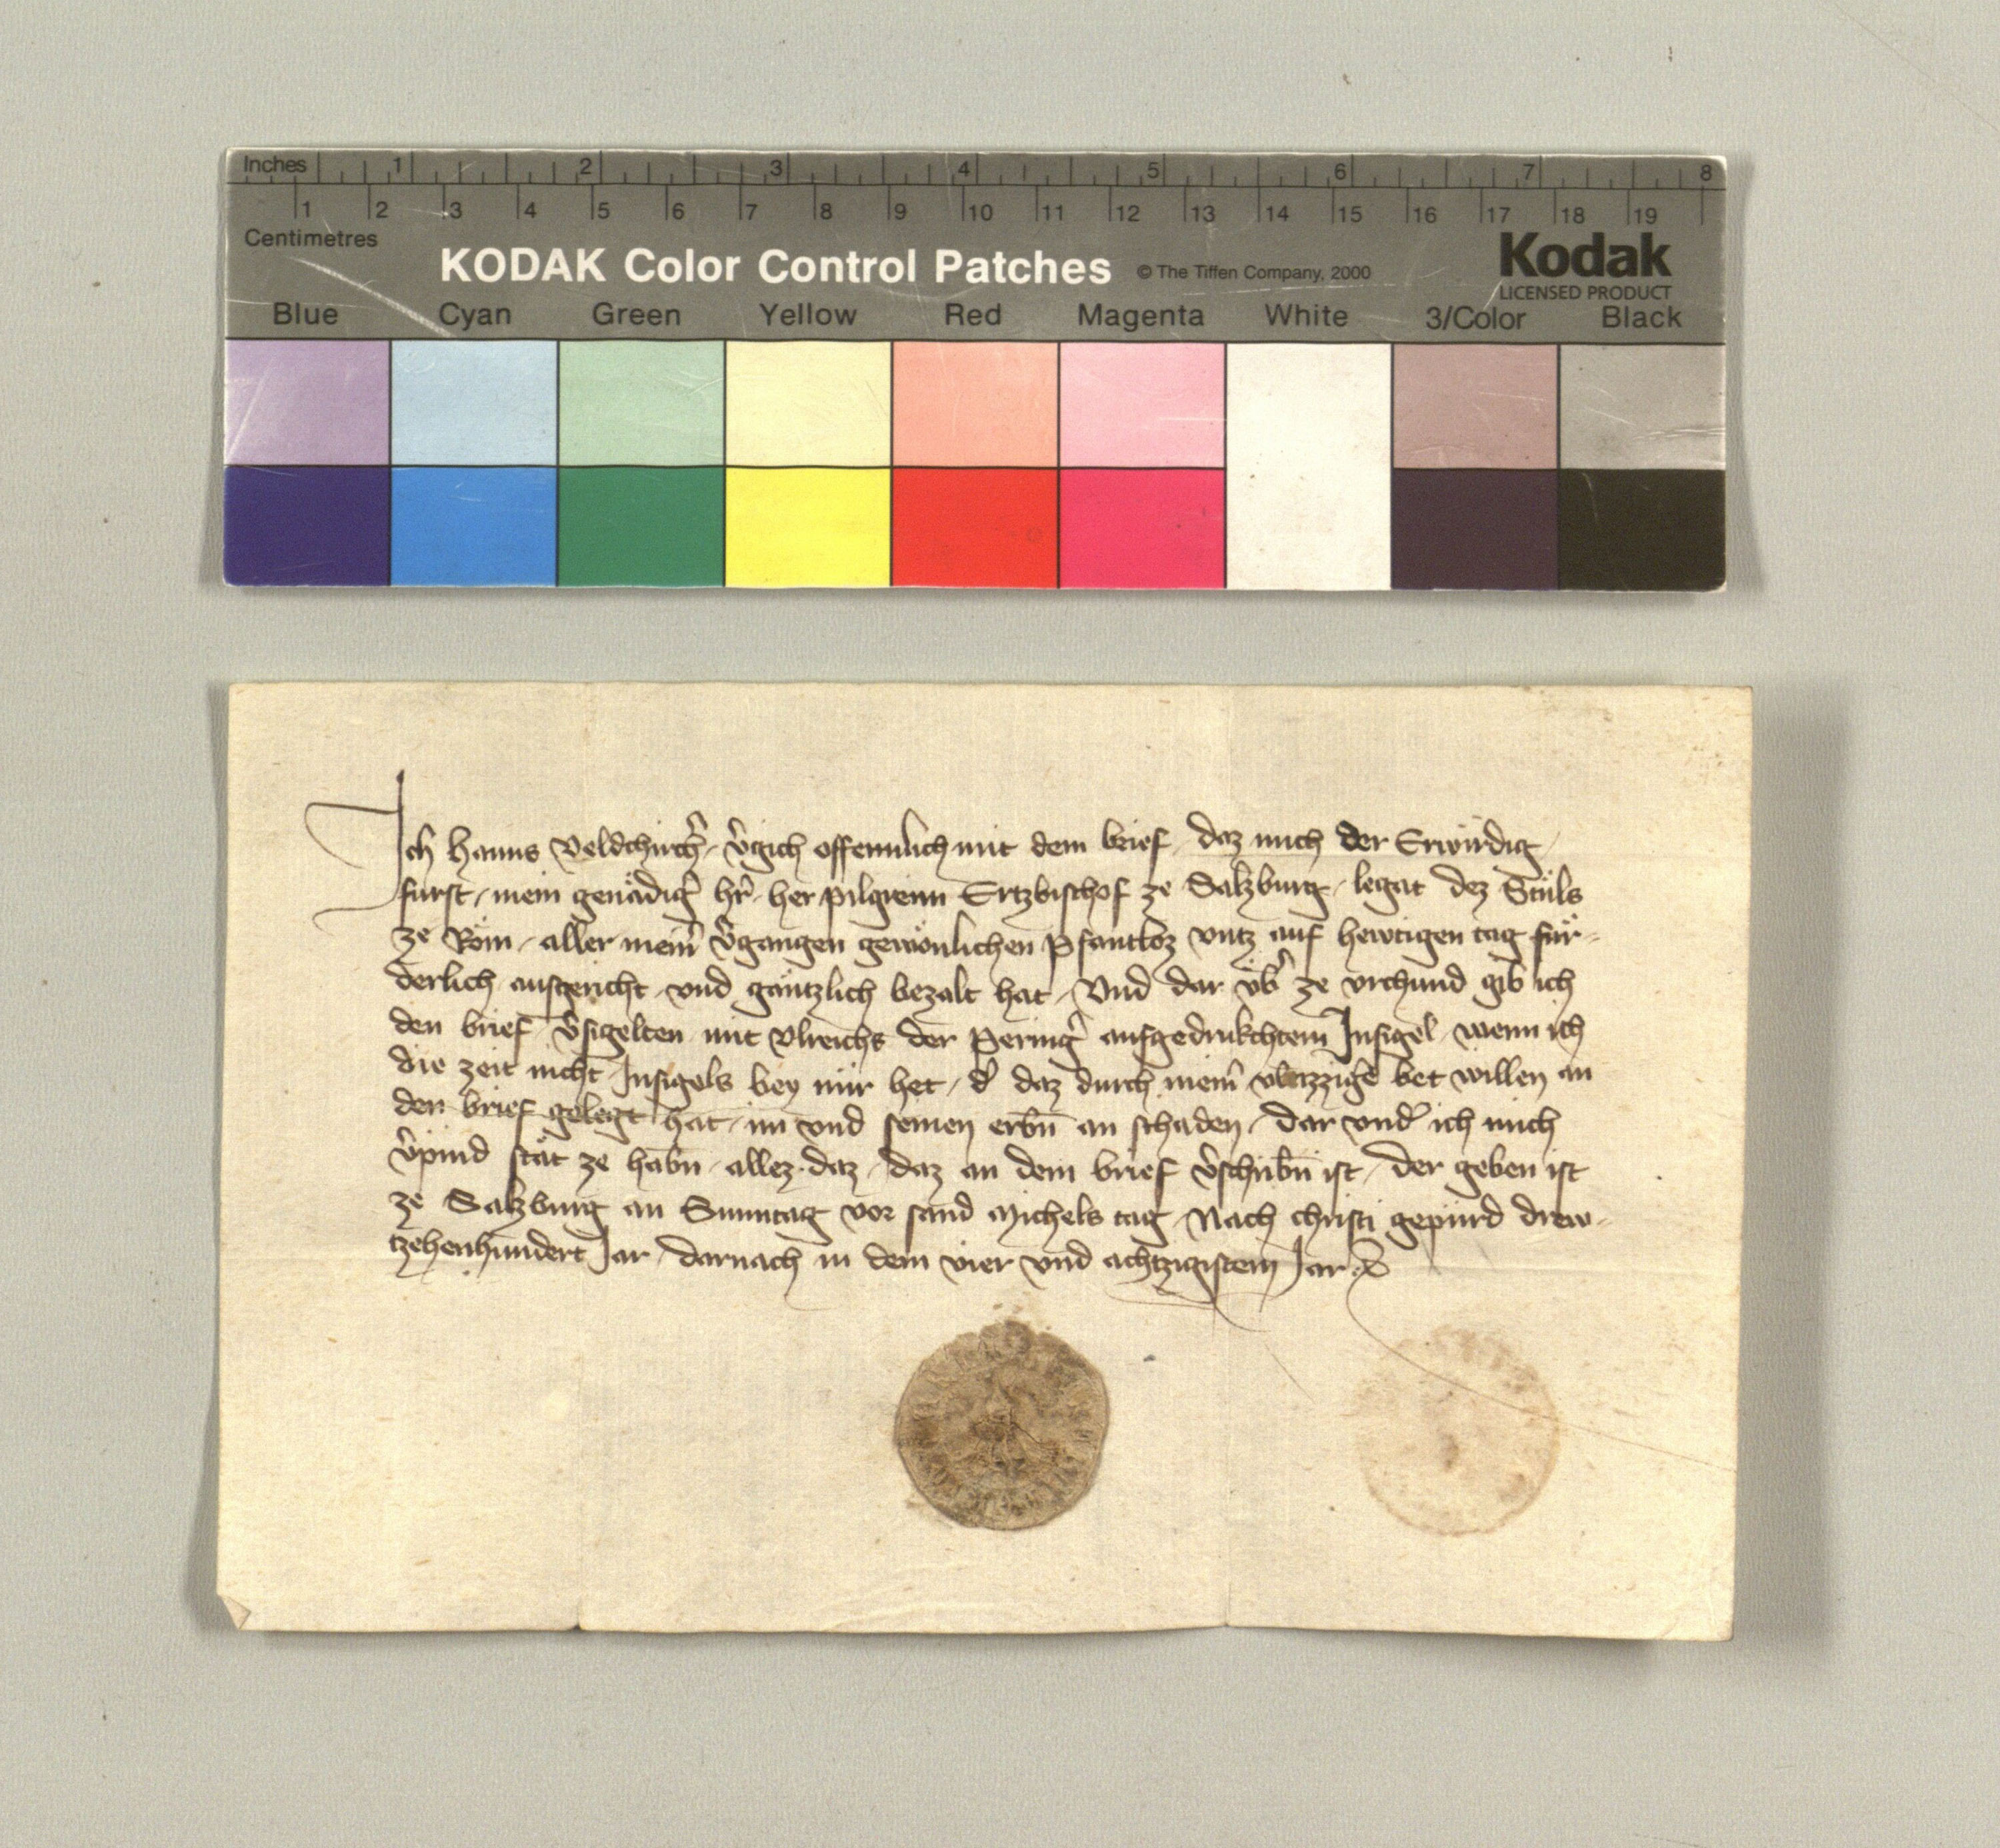 Inches 1 2 3 4 5 6 7 8
1 2 3 4 5 6 7 8 9 10 11 12 13 14 15 16 17 18 19
Centimetres
KODAK Color Control Patches © The Tiffen Company, 2000 Kodak
LICENSED PRODUCT
Blue Cyan Green Yellow Red Magenta White 3/Color Black
Ich Hanns Veldchircher v̂gich offennlich mit dem brief daz mich der Erwirdig
fürst mein genädig̉ hr̉ her pilgreim Ertzbischof ze Salzburg legat dez Stůls
ze Rom aller meiner v̂gangen gewönlichen Pfantloz vntz auf hewtigen tag für-
derlich ausgericht vnd gäntzlich bezalt hat Vnd dar vb̉ ze vrchund gib ich
den brief v̂sigelten mit Vlreichs der Pering̉ aufgedrukchtem Insigel wenn ich
die zeit nicht Insigels bey mir het d̉ daz durch meiner bet willen an
den brief gelegt hat im vnd seinen erbn̄ an schaden dar vnd̉ ich mich
v̂pind stät ze habn̄ allez daz daz an dem brief v̂schribn̄ ist der geben ist
ze Salzburg an Sunntag vor sand Michels tag Nach christi gepurd drew-
tzehenhundert Jar darnach in dem vier vnd achtzigistem Jar